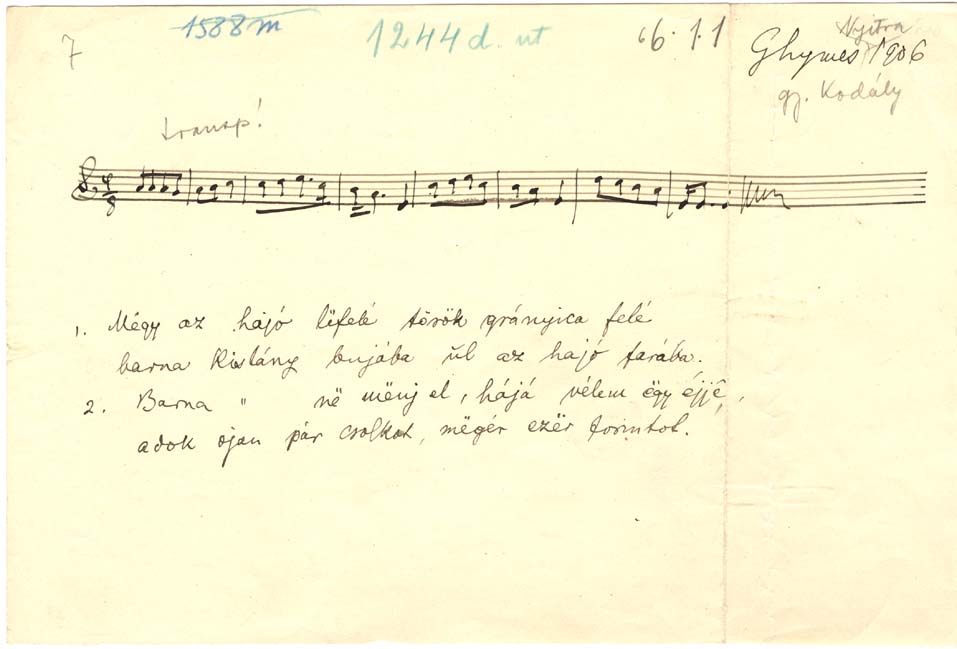 7
1588 m
1244 d. ut
6. 1. 1
Nyitra
Ghymes 1906
gy. Kodály
transp!
1. Mégy az hajó lëfelé török grányica felé
barna kislány bujába ül az hajó farába.
2. Barna " në mënj el, hájá vélem ëgy éjjê,
adok ojan pár csolkot, mëgér ezër forintot.